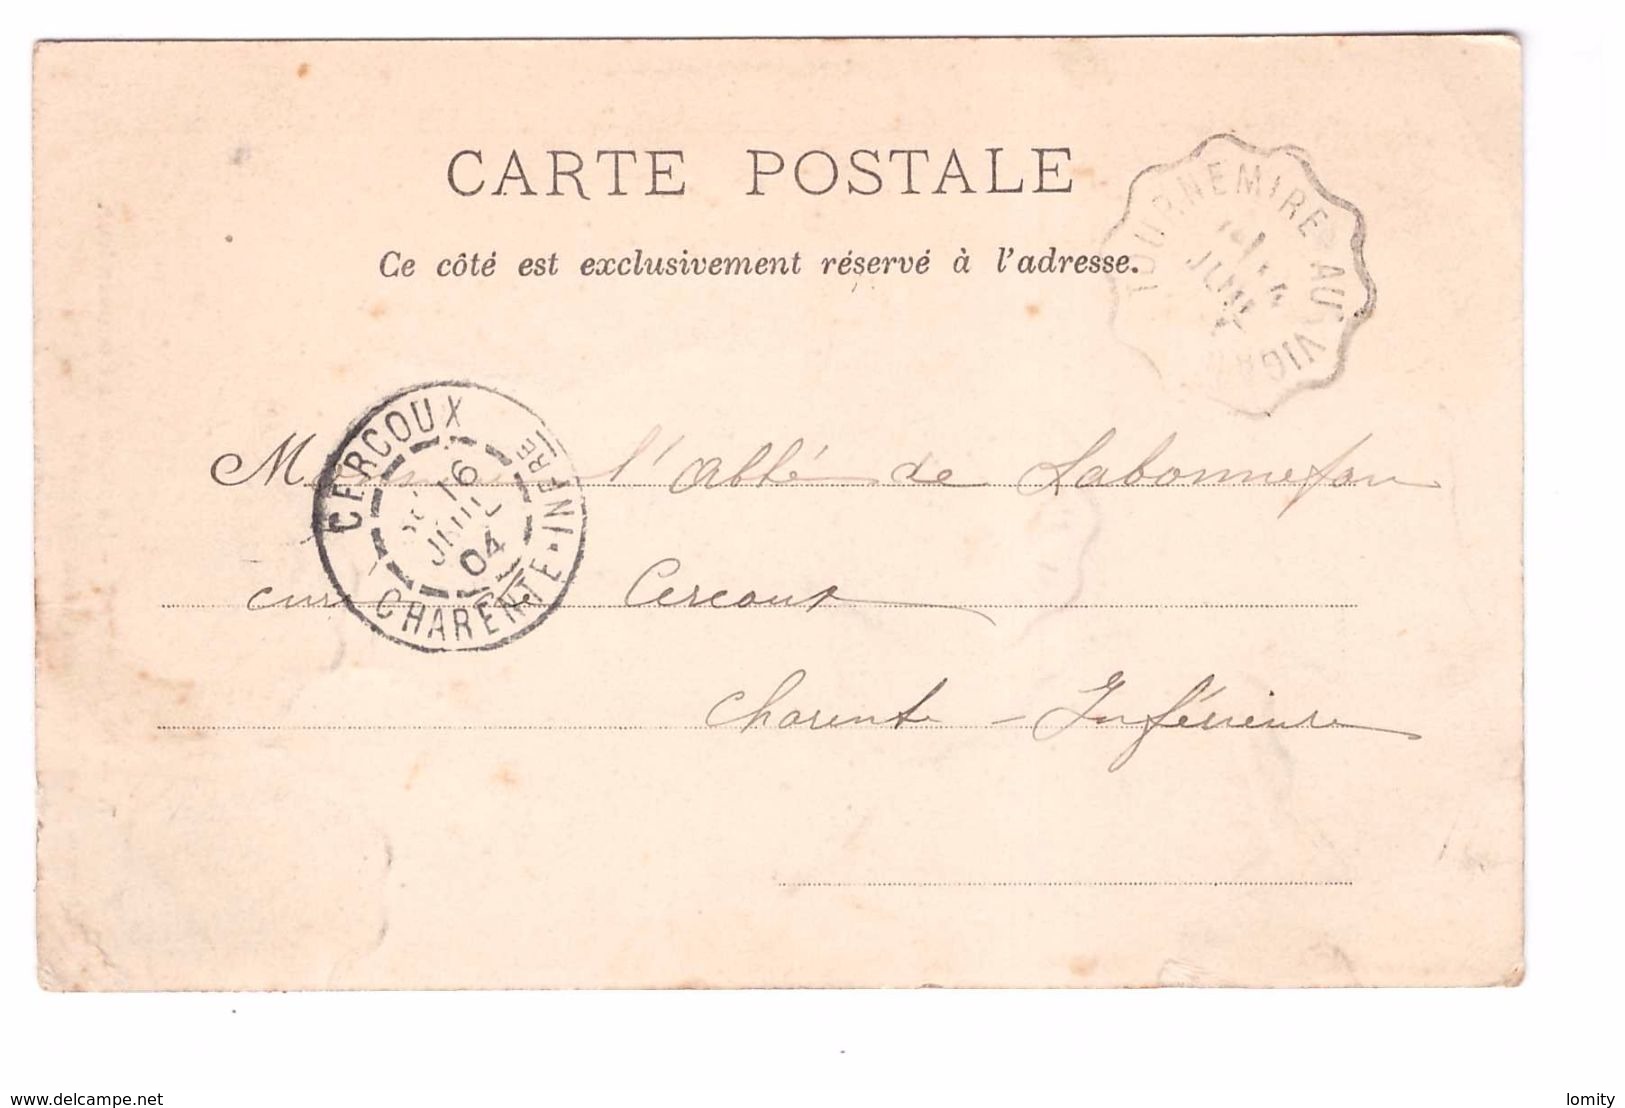 CARTE POSTALE
Ce côté est exclusivement réservé à l'adresse.
TOURNEMIRE AU VIGAN
CERCOUX
16
JUIL
04
CHARENTE-INFRE
Monsieur l'Abbé de Labonnefon
curé de Cercoux
Charente - Inférieure
www.delcampe.net
lomity